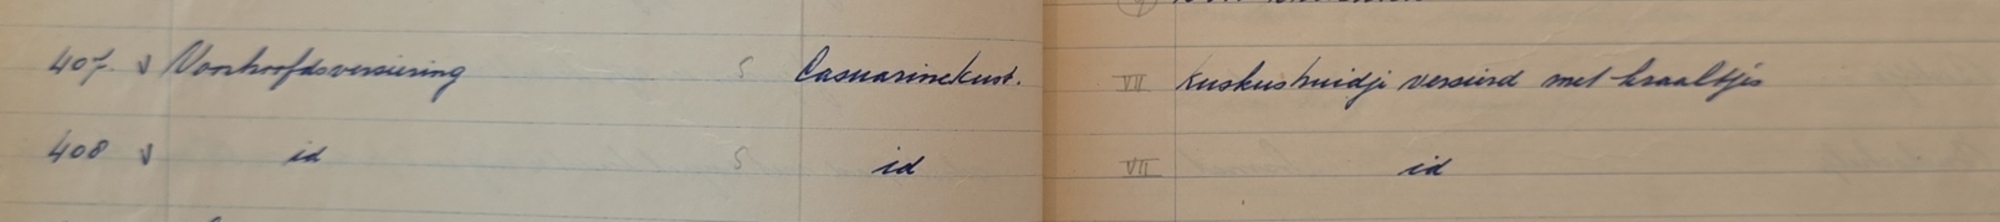 407. v Voorhoofdsversiering S Casuarinekust. VII Kuskushuidje versierd met kraaltjes
408 v id S id VII id